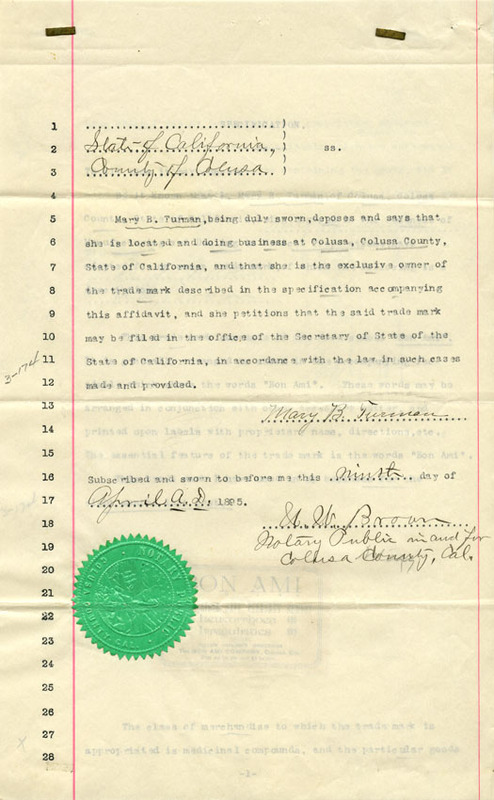 1
2 State of California,
ss.
3 County of Colusa
4
5 Mary B. Turman, being duly sworn, deposes and says that
6 she is located and doing business at Colusa, Colusa County,
7 State of California, and that she is the exclusive owner of
8 the trade mark described in the specification accompanying
9 this affidavit, and she petitions that the said trade mark
10 may be filed in the office of the Secretary of State of the
11 State of California, in accordance with the law in such cases
12 made and provided.
13 Mary B. Turman
14
15
16 Subscribed and sworn to before me this ninth day of
17 April A.D. 1895.
18 W. W. Brown
19 Notary Public in and for
Colusa County, Cal.
20
21
BON AMI
22
23
24
25
26
The class of merchandise to which the trade mark is
27
appropriated is medicinal compounds, and the particular goods
28
-1-